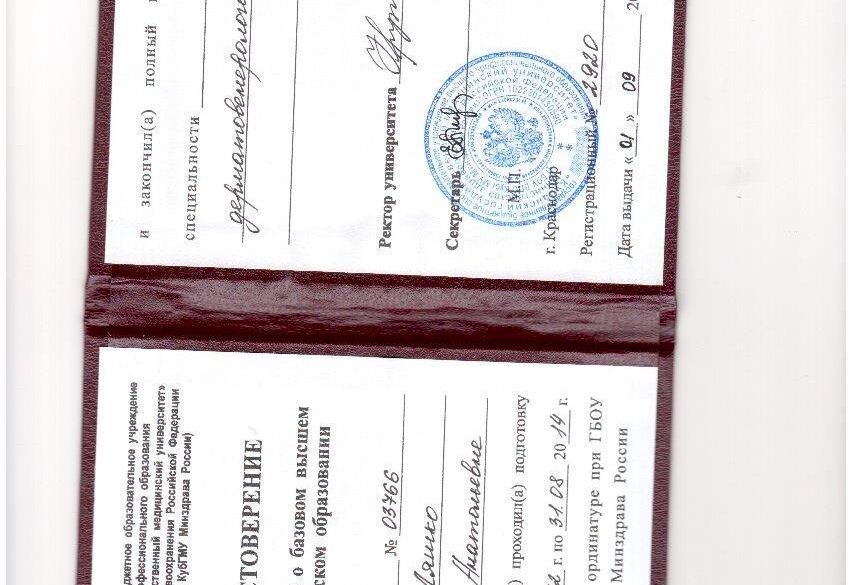 джетное образовательное учреждение
фессионального образования
ственный медицинский университет»
воохранения Российской Федерации
КубГМУ Минздрава России)
СТОВЕРЕНИЕ
о базовом высшем
ском образовании
№ 03766
Анатольевне
) проходил(а) подготовку
г. по 31.08 2014 г.
ординатуре при ГБОУ
Минздрава России
и закончил(а) полный
специальности
дерматовенерологи
Ректор университета
Секретарь
М.П.
г. Краснодар
Регистрационный № 2920
Дата выдачи « 01 » 09 20